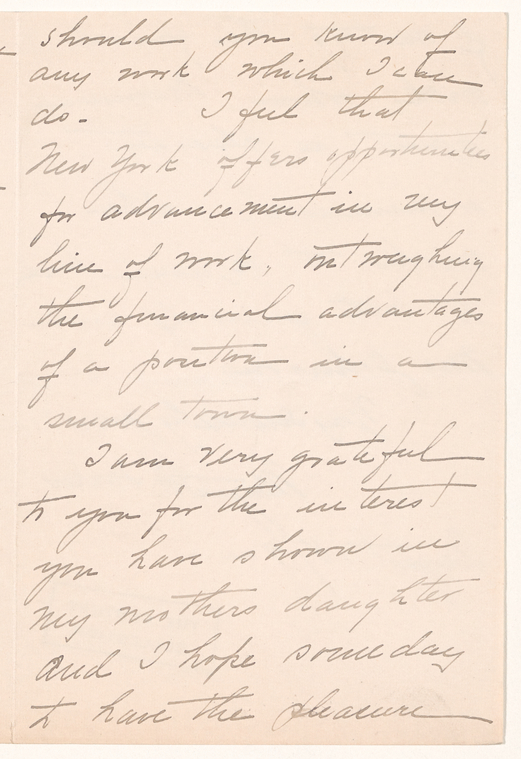 should you know of
any work which I can
do. I feel that
New York offers opportunities
for advancement in my
line of work, outweighing
the financial advantages
of a position in a
small town.
I am very grateful
to you for the interest
you have shown in
my mothers daughter
and I hope someday
to have the pleasure